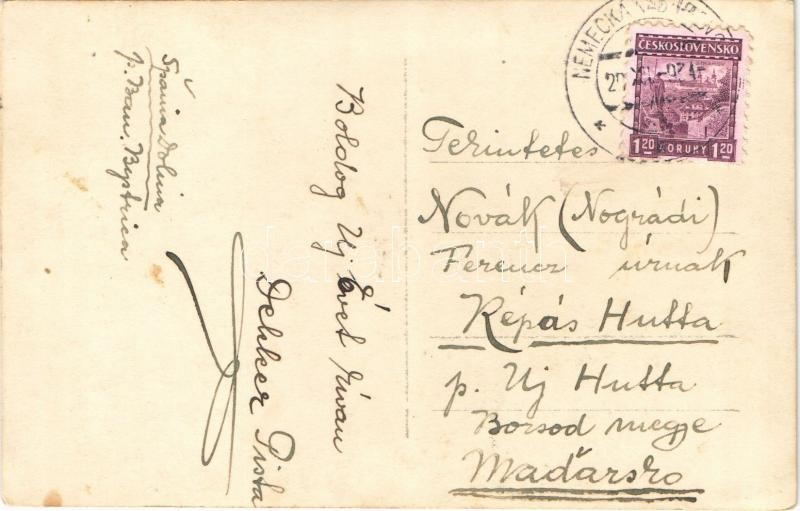 Špania Dolina
p. Ban. Bystrica
Boldog Uj Évet kiván
Dekker Pista
Tekintetes
Novák (Nográdi)
Ferencz úrnak
Répás Hutta
p. Uj Hutta
Borsod megye
Maďarsko
ČESKOSLOVENSKO
1.20 KORUNY 1.20
NEMECKÁ
darabanth